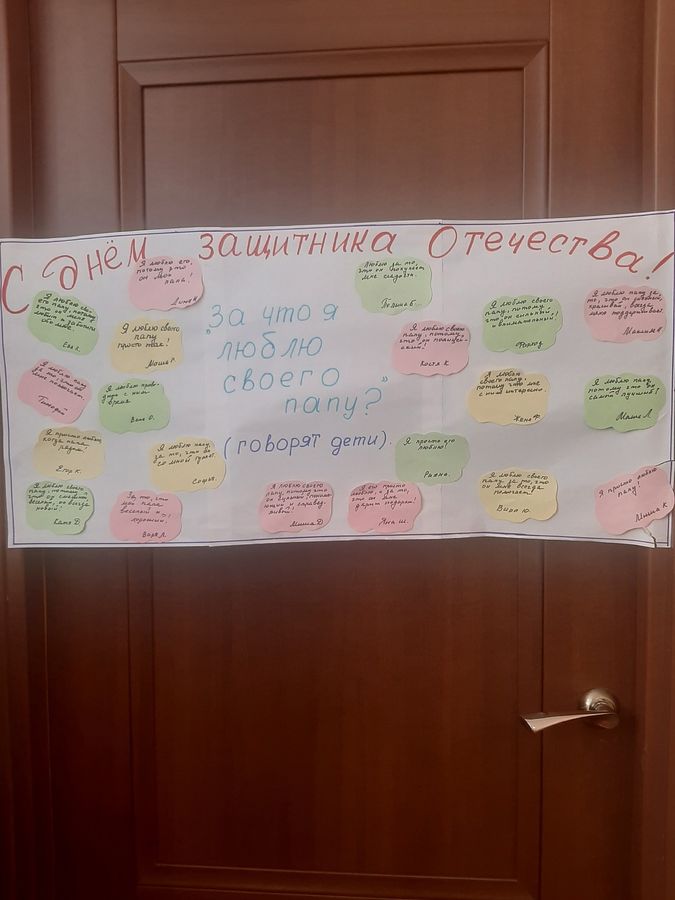 С Днём защитника Отечества!
"За что я
люблю
своего
папу?"
(говорят дети).
Я люблю его,
потому что
он мой
папа.
Люблю за то,
что он покупает
мне сладости.
Полина Б.
Я люблю своего
папу, потому
что он сильный
и внимательный!
Я люблю папу за
то, что он
красивый, всегда
меня поддерживает!
Максим
Ева К.
Я люблю своего
папу
просто так!
Маша Р.
Я люблю своего
папу, потому
что он полицей-
ский!
Костя К.
Я люблю папу
за то, что он
мне помогает.
Тимофей
Я люблю прово-
дить с ним
время
Ваня О.
Я люблю
своего папу,
потому что мне
с ним интересно.
Женя Ф.
Я люблю папу,
потому что он
самый лучший!
Маша Л.
Я просто люблю,
когда папа
рядом!
Егор К.
Я люблю папу,
за то, что он
со мной гуляет.
София.
Я просто его
люблю!
Риана.
Я люблю своего
папу, потому
что он самый
весёлый, он всегда
новый!
Катя Д.
За то, что
мой папа
весёлый и
хороший.
Варя Л.
Я люблю своего
папу, потому что
он
и справед-
ливый!
Миша Д.
Я его просто
люблю, и за то,
что он мне
дарит подарки!
Яна Ш.
Я люблю своего
папу за то, что
он мне всегда
помогает!
Варя Ю.
Я просто люблю
папу!
Миша К.